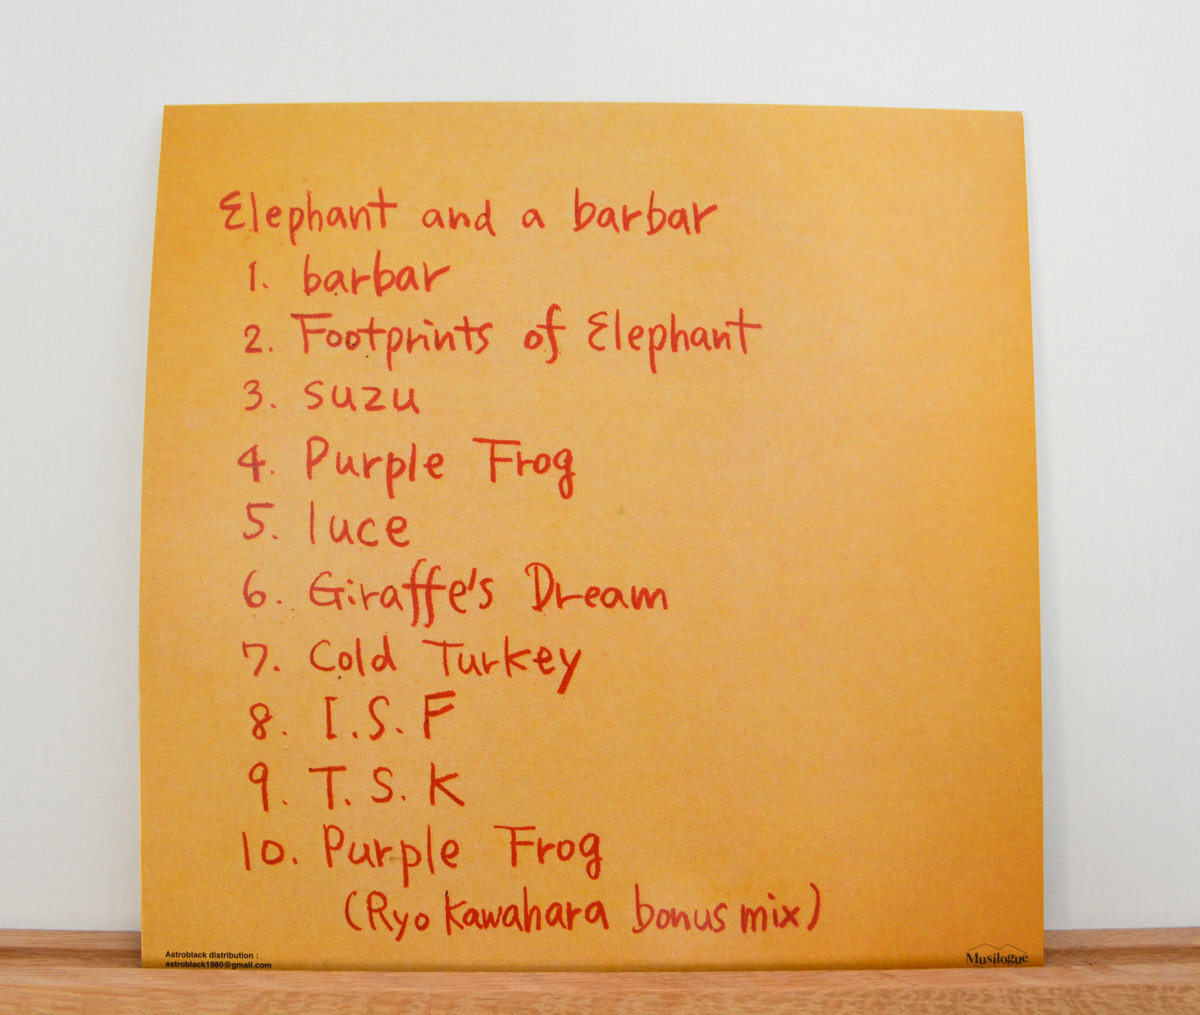 Elephant and a barbar
1. barbar
2. Footprints of Elephant
3. suzu
4. Purple Frog
5. luce
6. Giraffe's Dream
7. Cold Turkey
8. I.S.F
9. T.S.K
10. Purple Frog
(Ryo Kawahara bonus mix)
Astroblack distribution :
astroblack1980@gmail.com
Musilogue